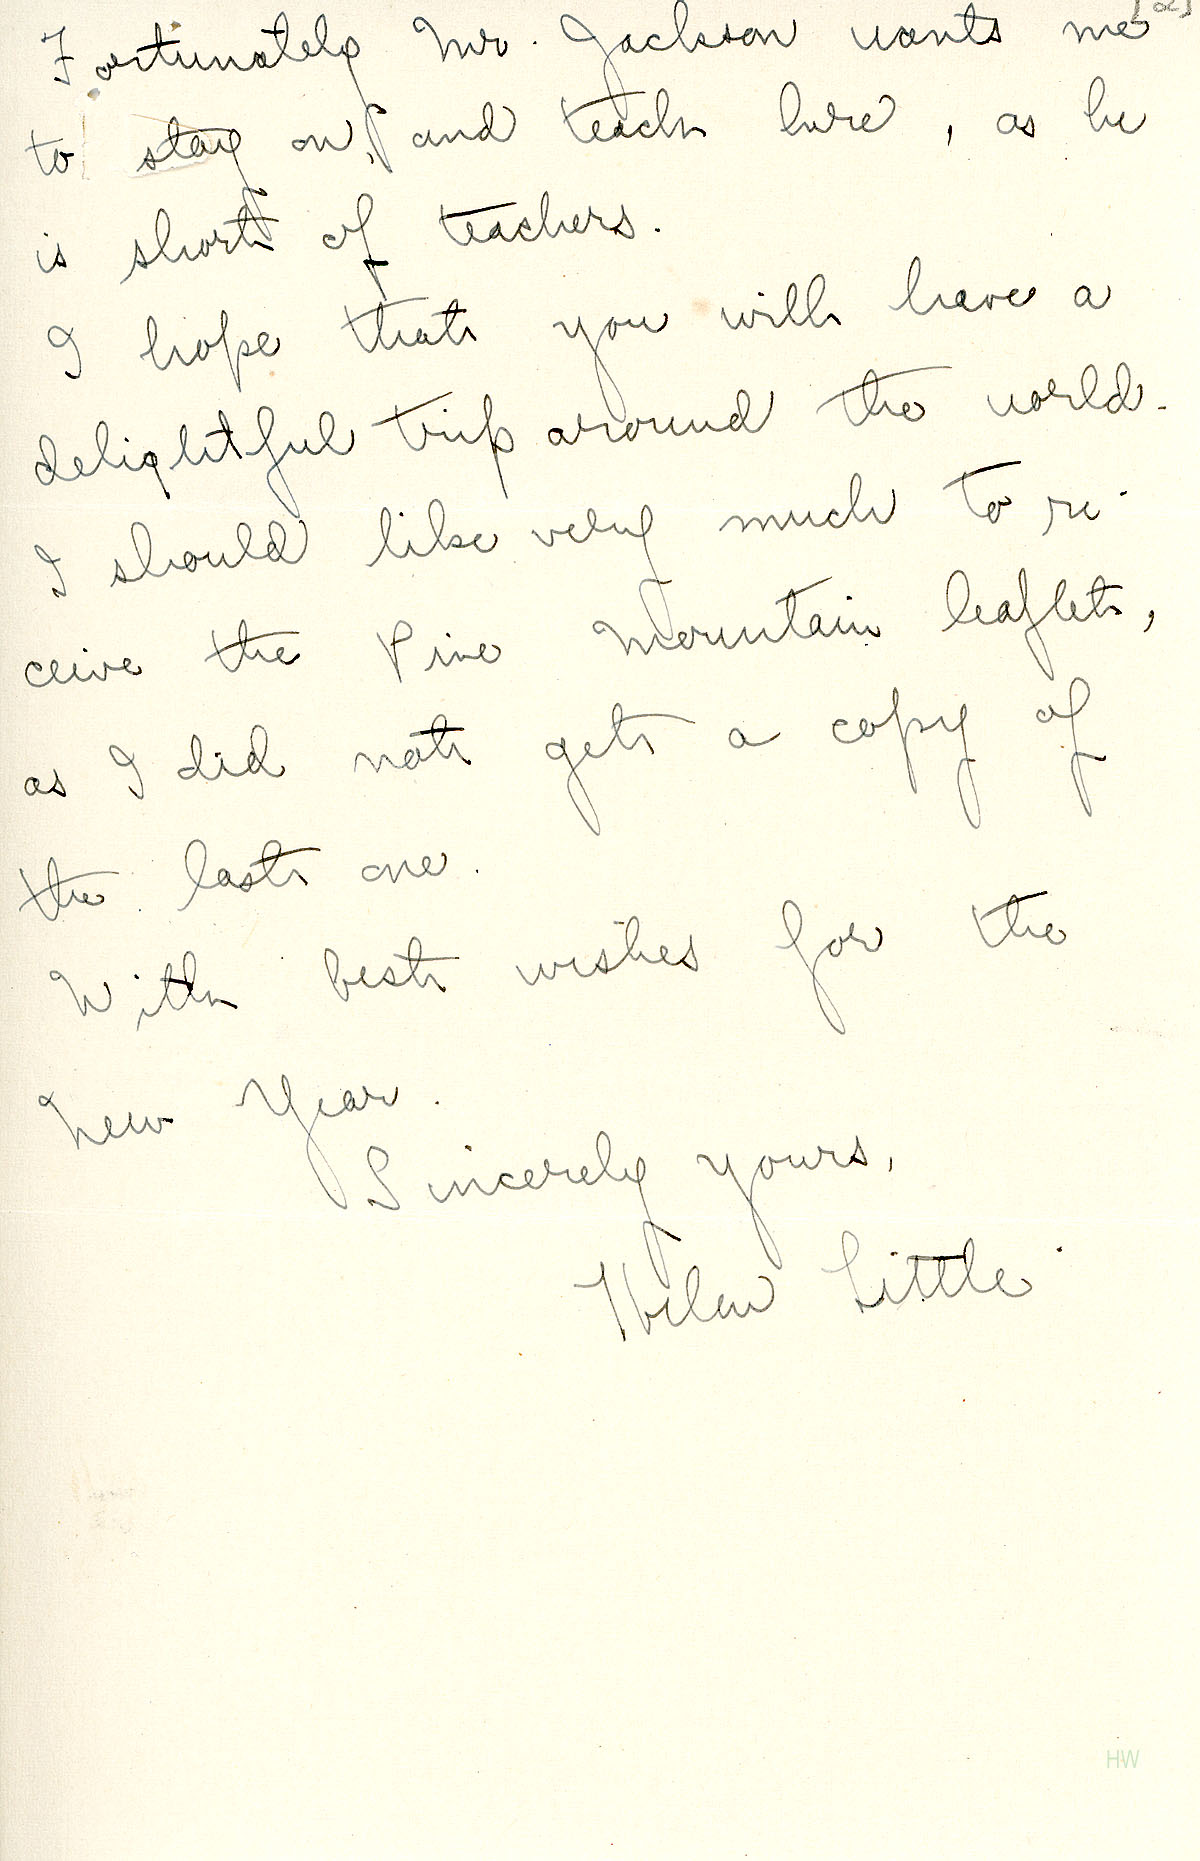 [02]
Fortunately Mr. Jackson wants me
to stay on, and teach here, as he
is short of teachers.
I hope that you will have a
delightful trip around the world.
I should like very much to re-
ceive the Pine Mountain leaflets,
as I did not get a copy of
the last one.
With best wishes for the
New Year.
Sincerely yours,
Helen Little
HW